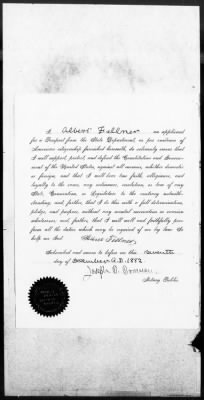 I, Albert Fellner an applicant
for a Passport from the State Department, as per evidence of
American citizenship furnished herewith, do solemnly swear that
I will support, protect, and defend the Constitution and Govern-
ment of the United States, against all enemies, whether domestic
or foreign; and that I will bear true faith, allegiance, and
loyalty to the same, any ordinance, resolution, or law of any
State, Convention, or Legislature to the contrary notwith-
standing; and further, that I do this with a full determination,
pledge, and purpose, without any mental reservation or evasion
whatsoever; and further, that I will well and faithfully per-
form all the duties which may be required of me by law. So
help me God. Albert Fellner
Subscribed and sworn to before me this seventh
day of December A.D. 1883.
Joseph B.
Notary Public